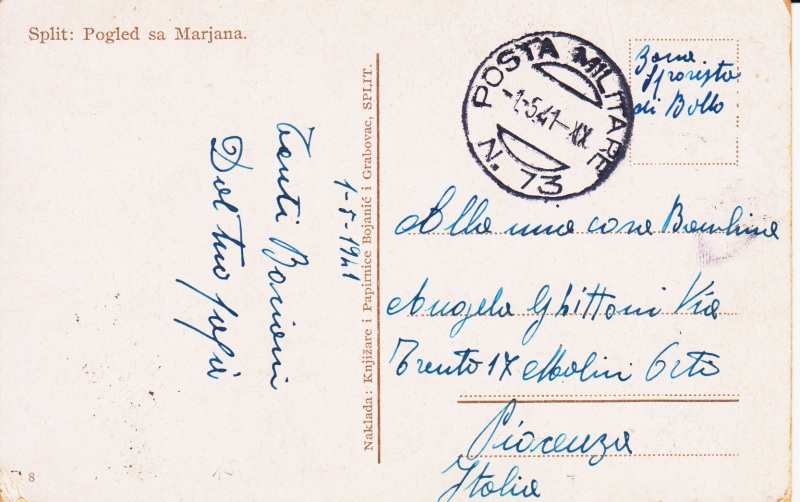 Split: Pogled sa Marjana.
Tanti Bacioni
Dal tuo papà
1-5-1941
Naklada: Knjižare i Papirnice Bojanić i Grabovac, SPLIT.
8
POSTA MILITARE
-1.5.41-XX
N. 73
Zona
Sprovista
di Bollo
Alla mia cara Bambina
Angela Ghittoni Via
Trento 17 Molin Orti
Piacenza
Italia